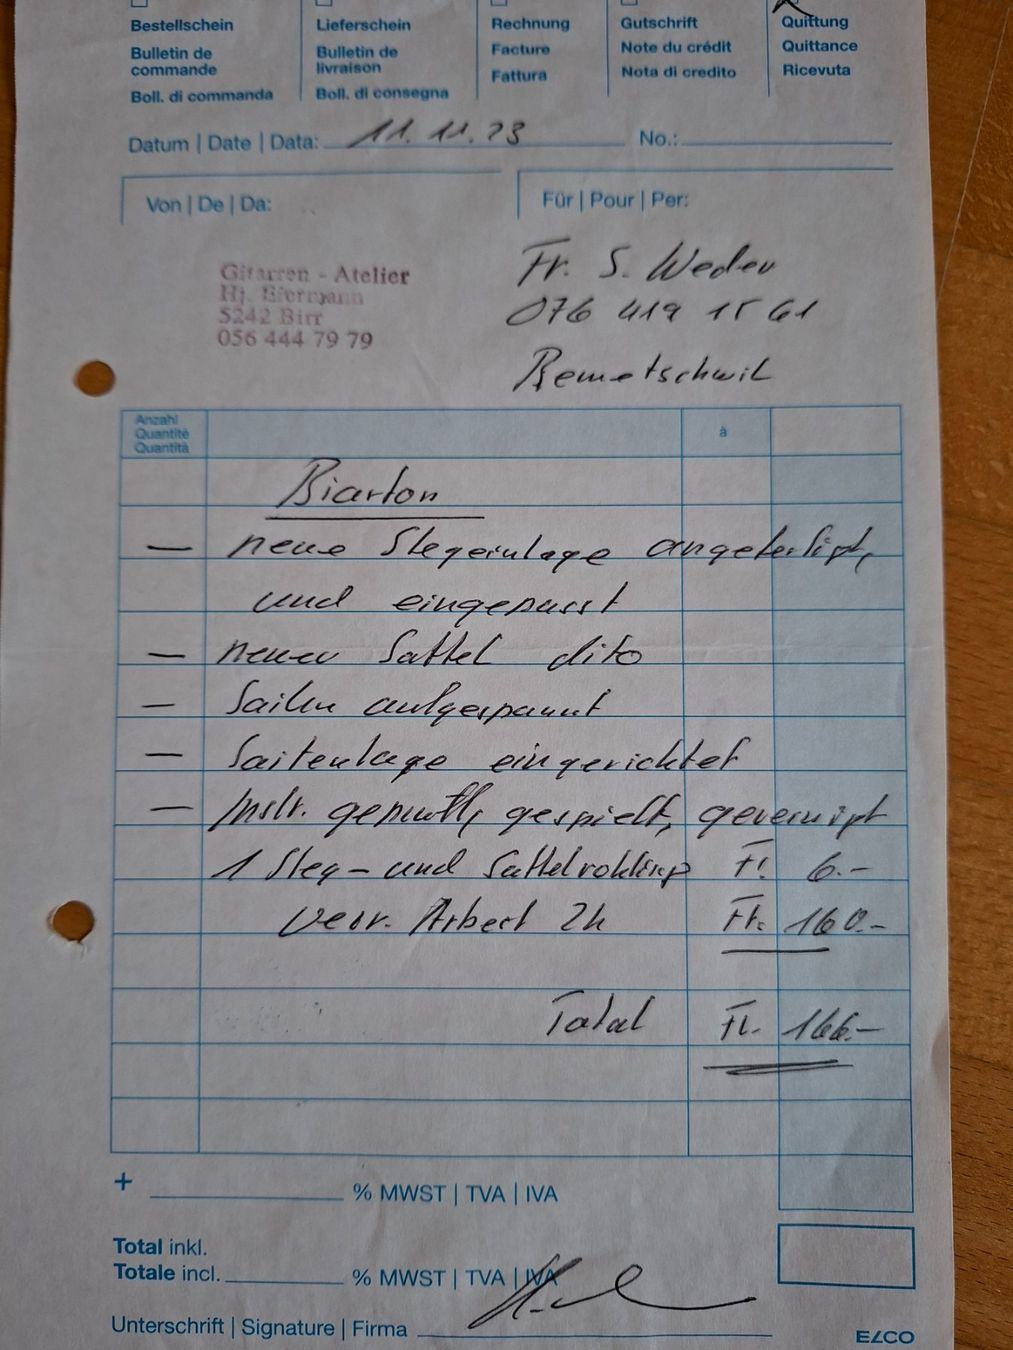 Bestellschein
Bulletin de
commande
Boll. di commanda
Lieferschein
Bulletin de
livraison
Boll. di consegna
Rechnung
Facture
Fattura
Gutschrift
Note du crédit
Nota di credito
Quittung
Quittance
Ricevuta
Datum | Date | Data: 11. 11. 23 No.:
Von | De | Da:
Gitarren - Atelier
Hj. Eiermann
5242 Birr
056 444 79 79
Für | Pour | Per:
Fr. S. Weder
076 419 15 61
Remetschwil
Anzahl
Quantité
Quantità
à
— neue Stegeinlage
und eingepasst
— neuer Sattel dito
— Saiten aufgespannt
— Saitenlage eingerichtet
— Instr. geputzt, gespielt,
1 Steg- und Sattelrohling Fr. 6.-
verr. Arbeit 2h Fr. 160.-
Total Fr. 166.-
+ % MWST | TVA | IVA
Total inkl.
Totale incl. % MWST | TVA | IVA
Unterschrift | Signature | Firma
ELCO